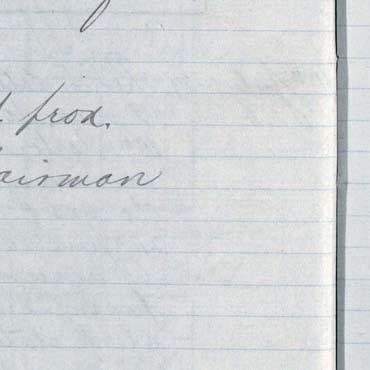 prox.
airman